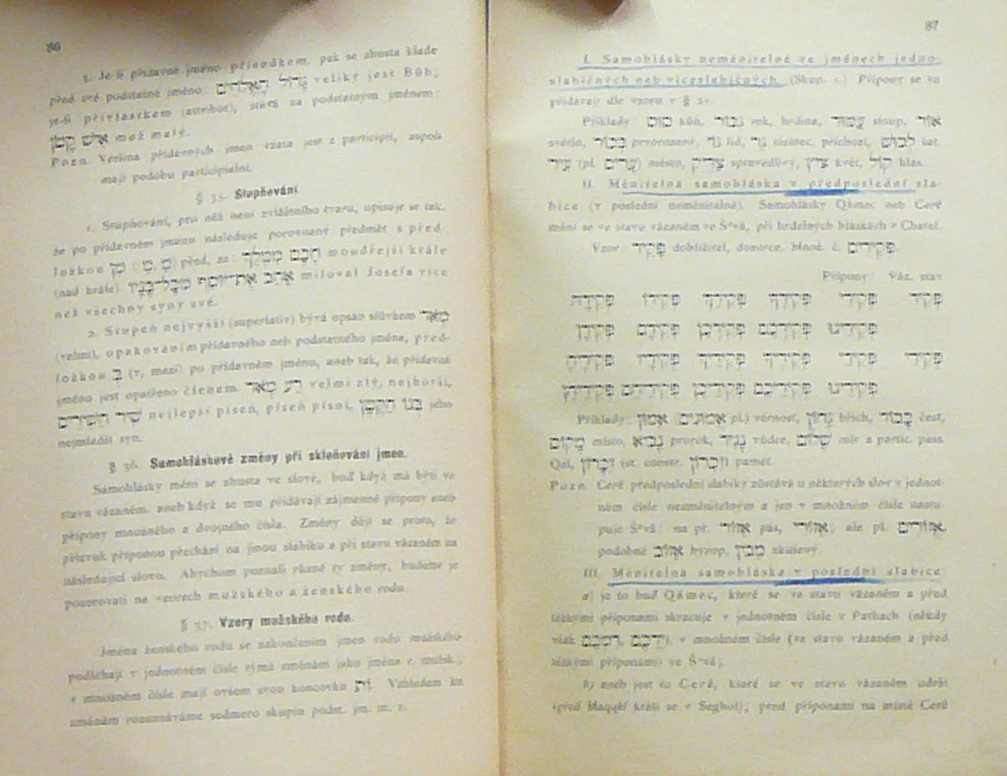 86
3. Je-li přídavné jméno přísudkem, pak se zhusta klade
před své podstatné jméno: גָּדוֹל הָאֱלֹהִים veliký jest Bůh;
je-li přívlastkem (attribut), stává za podstatným jménem:
אִישׁ קָטֹן muž malý.
Pozn. Většina přídavných jmen vzata jest z participií, aspoň
mají podobu participialní.
§ 35. Stupňování
1. Stupňování, pro něž není zvláštního tvaru, opisuje se tak,
že po přídavném jménu následuje porovnaný předmět s před-
ložkou מִן (מִ, מֵ) před, za: חָכָם מִמֶּלֶךְ moudřejší krále
(nad krále). אָהַב אֶת־יוֹסֵף מִכָּל־בָּנָיו miloval Josefa více
než všechny syny své.
2. Stupeň nejvyšší (superlativ) bývá opsán slůvkem מְאֹד
(velmi), opakováním přídavného neb podstatného jména, před-
ložkou בְּ (v, mezi) po přídavném jménu, aneb tak, že přídavné
jméno jest opatřeno členem. רַע מְאֹד velmi zlý, nejhorší,
שִׁיר הַשִּׁירִים nejlepší píseň, píseň písní, בְּנוֹ הַקָּטָן jeho
nejmladší syn.
§ 36. Samohláskové změny při skloňování jmen.
Samohlásky mění se zhusta ve slově, buď když má býti ve
stavu vázaném, aneb když se mu přidávají zájmenné přípony aneb
přípony množného a dvojného čísla. Změny dějí se proto, že
přízvuk příponou přechází na jinou slabiku a při stavu vázaném na
následující slovo. Abychom poznali různé ty změny, budeme je
pozorovati na vzorech mužského a ženského rodu.
§ 37. Vzory mužského rodu.
Jména ženského rodu se zakončením jmen rodu mužského
podléhají v jednotném čísle týmž změnám jako jména r. mužsk.;
v množném čísle mají ovšem svou koncovku וֹת. Vzhledem ku
změnám rozeznáváme sedmero skupin podst. jm. m. r.
87
I. Samohlásky neměnitelné ve jménech jedno-
slabičných neb víceslabičných. (Skup. 1.) Přípony se tu
přidávají dle vzoru v § 31.
Příklady: סוּס kůň, גִּבּוֹר rek, hrdina, עַמּוּד sloup, אוֹר
světlo, בְּכוֹר prvorozený, גּוֹי lid, גֵּר cizinec, příchozí, לְבוּשׁ šat,
עִיר (pl. עָרִים) město, צַדִּיק spravedlivý, צִיץ květ, קוֹל hlas.
II. Měnitelná samohláska v předposlední sla-
bice (v poslední neměnitelné). Samohlásky Qámec neb Ceré
mění se ve stavu vázaném ve Šᵉvá, při hrdelných hláskách v Chatef.
Vzor: פָּקִיד dohližitel, domírce, množ. č. פְּקִידִים.
Přípony: Váz. stav
פְּקִיד פְּקִידִי פְּקִידְךָ פְּקִידֵךְ פְּקִידוֹ פְּקִידָהּ
פְּקִידֵנוּ פְּקִידְכֶם פְּקִידְכֶן פְּקִידָם פְּקִידָן
פְּקִידֵי פְּקִידַי פְּקִידֶיךָ פְּקִידַיִךְ פְּקִידָיו פְּקִידֶיהָ
פְּקִידֵינוּ פְּקִידֵיכֶם פְּקִידֵיכֶן פְּקִידֵיהֶם פְּקִידֵיהֶן
Příklady: אֵמוּן (אֱמוּנִים pl.) věrnost, גָּחוֹן břich, כָּבוֹד čest,
מָקוֹם místo, נָבִיא prorok, נָגִיד vůdce, שָׁלוֹם mír a partic. pass.
Qal, זִכָּרוֹן (st. constr. זִכְרוֹן) paměť.
Pozn. Ceré předposlední slabiky zůstává u některých slov v jednot-
ném čísle nezměnitelným a jen v množném čísle nastu-
puje Šᵉvá: na př. אֵזוֹר pás, אֵזוֹר; ale pl. אֲזוֹרִים,
podobně אֵזוֹב hyzop,
III. Měnitelná samohláska v poslední slabice
a) je to buď Qámec, které se ve stavu vázaném a před
těžkými příponami zkracuje v jednotném čísle v Pathach (někdy
však יֶדְכֶם, דִּמְכֶם), v množném čísle (ve stavu vázaném a před
těžkými příponami) ve Šᵉvá;
b) aneb jest to Ceré, které se ve stavu vázaném udrží
(před Maqqéf krátí se v Seghol); před příponami na místě Ceré